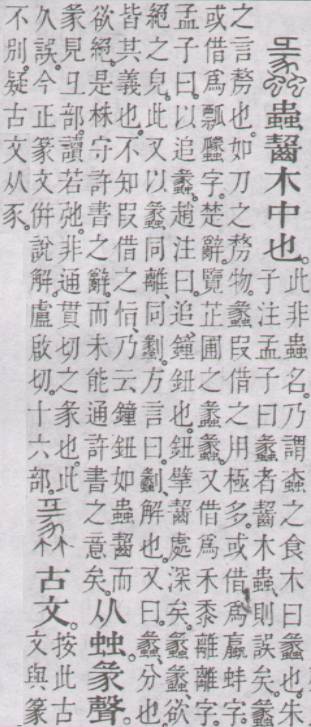 蟲齧木中也。
此非蟲名。乃謂螙之食木曰蠡也。朱
子注孟子曰蠡者齧木蟲、則誤矣。蠡
之言剺也。如刀之剺物。蠡叚借之用極多。或借爲蠃蚌字。
或借爲瓢蠡字。楚辭覽芷圃之蠡蠡。又借爲禾黍離離字。
孟子曰。以追蠡。趙注曰。追鐘鈕也。鈕擘齧處深矣。蠡蠡欲
絕之皃。此又以蠡同離、同劙。方言曰。劙、解也。又曰。蠡、分也。
皆其義也。不知叚借之恉、乃云鐘鈕如蟲齧而
欲絕。是株守許書之辭。而未能通許書之意矣。
从䖵。彖聲。
彖見彑部。讀若弛。非通貫切之彖也。此
久誤。今正篆文倂說解。盧啟切。十六部。
古文。
按此古
文與篆
不別。疑古文从豕。